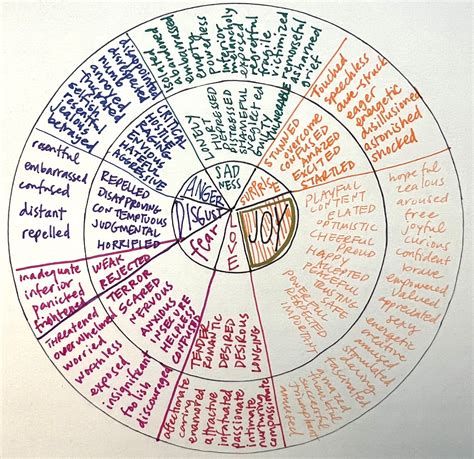 SAD
NESS
SURPRISE
JOY
LOVE
fear
DISGUST
ANGER
LONELY
HURT
DEPRESSED
DISTRESSED
SHAMEFUL
NEGLECTED
GUILTY
VULNERABLE
STUNNED
OVERCOME
CONFUSED
AMAZED
EXCITED
STARTLED
PLAYFUL
CONTENT
ELATED
OPTIMISTIC
CHEERFUL
PROUD
HAPPY
ACCEPTED
PEACEFUL
TRUSTING
POWERFUL
LONGING
DESIROUS
DESIRED
ROMANTIC
TENDER
CONFUSED
HELPLESS
INSECURE
ANXIOUS
NERVOUS
SCARED
TERROR
REJECTED
WEAK
REPELLED
DISAPPROVING
CONTEMPTUOUS
JUDGMENTAL
HORRIFIED
CRITICAL
HATEFUL
AGGRESSIVE
embarrassed
empty
powerless
inferior
melancholy
exposed
regretful
fragile
victimized
remorseful
ashamed
grief
Touched
speechless
awe-struck
eager
energetic
disillusioned
astonished
shocked
hopeful
zealous
aroused
free
joyful
curious
confident
brave
empowered
valued
appreciated
sexy
energetic
amused
stimulated
fascinated
successful
important
compassionate
nurturing
intimate
passionate
infatuated
attractive
enamored
caring
affectionate
discouraged
foolish
insignificant
exposed
worthless
worried
overwhelmed
threatened
frightened
panicked
inferior
inadequate
resentful
embarrassed
confused
distant
repelled
disappointed
disrespected
annoyed
frustrated
jealous
betrayed